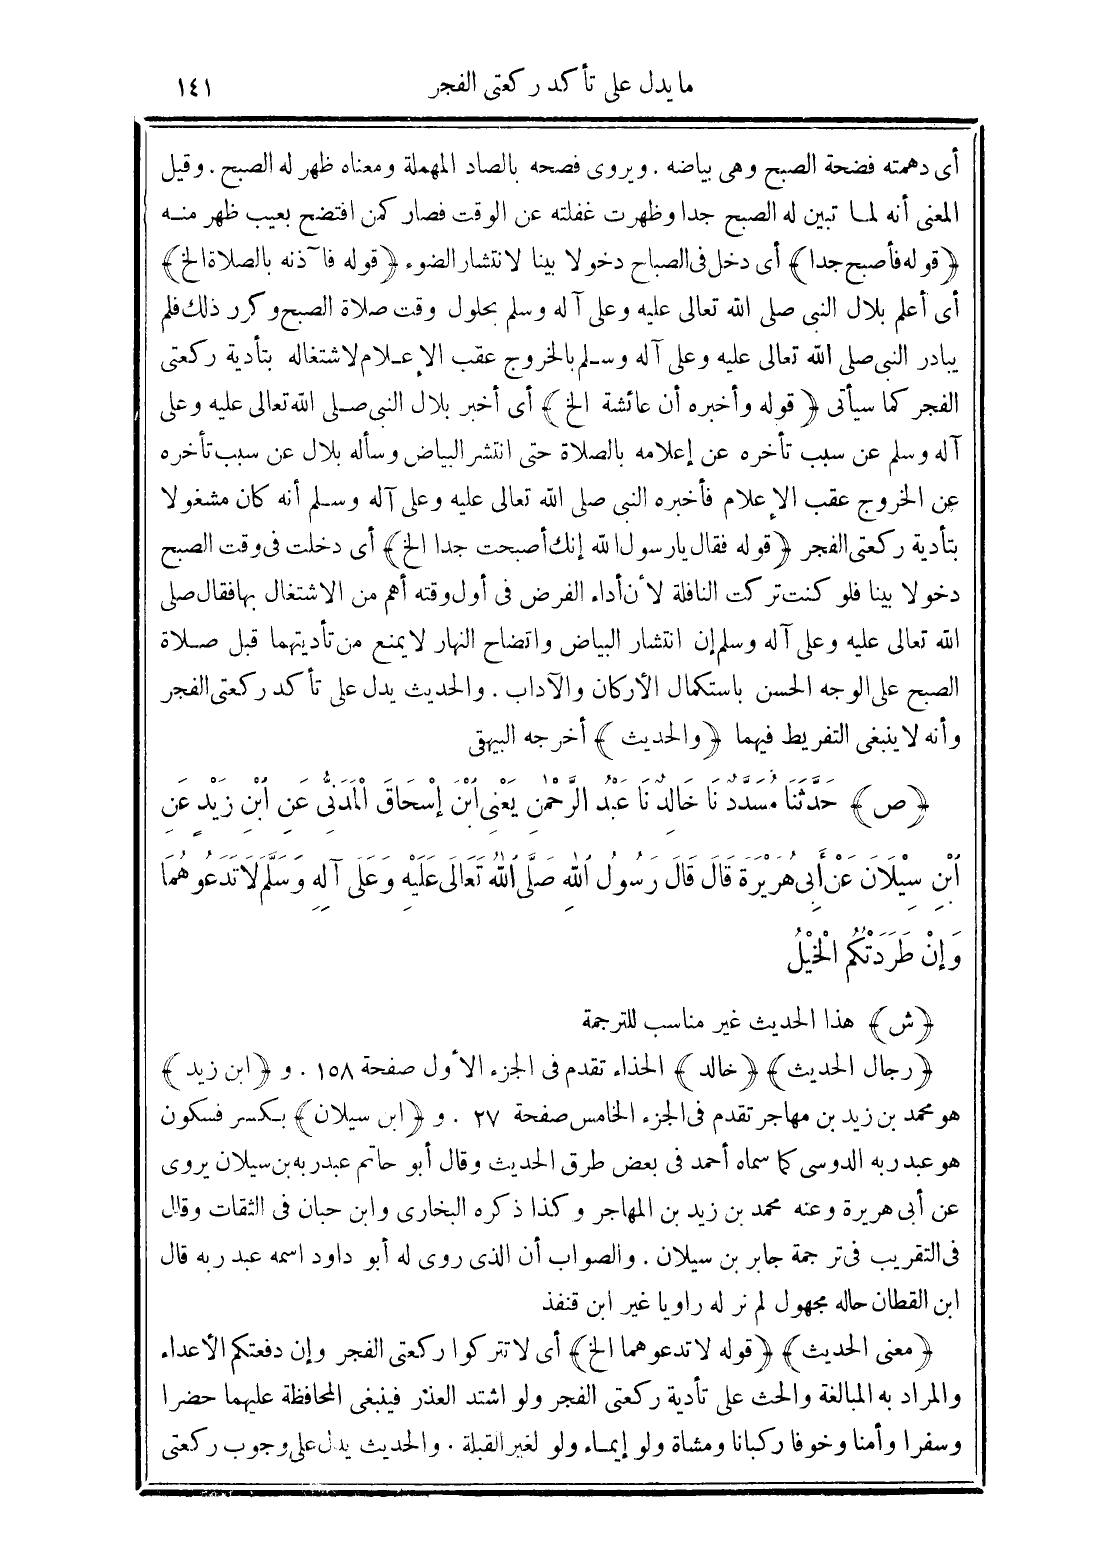 ما يدل على تأكد ركعتى الفجر ١٤١
أى دهمته فضحة الصبح وهى بياضه . ويروى فصحه بالصاد المهملة ومعناه ظهر له الصبح . وقيل
المعنى أنه لما تبين له الصبح جدا وظهرت غفلته عن الوقت فصار كمن افتضح بعيب ظهر منه
﴿قوله فأصبح جدا﴾ أى دخل فى الصباح دخولا بينا لانتشار الضوء ﴿قوله فآذنه بالصلاة الخ﴾
أى أعلم بلال النبى صلى الله تعالى عليه وعلى آله وسلم بحلول وقت صلاة الصبح وكرر ذلك فلم
يبادر النبى صلى الله تعالى عليه وعلى آله وسلم بالخروج عقب الإعلام لاشتغاله بتأدية ركعتى
الفجر كما سيأتى ﴿قوله وأخبره أن عائشة الخ﴾ أى أخبر بلال النبى صلى الله تعالى عليه وعلى
آله وسلم عن سبب تأخره عن إعلامه بالصلاة حتى انتشر البياض وسأله بلال عن سبب تأخره
عن الخروج عقب الإعلام فأخبره النبى صلى الله تعالى عليه وعلى آله وسلم أنه كان مشغولا
بتأدية ركعتى الفجر ﴿قوله فقال يارسول الله إنك أصبحت جدا الخ﴾ أى دخلت فى وقت الصبح
دخولا بينا فلو كنت تركت النافلة لأن أداء الفرض فى أول وقته أهم من الاشتغال بها فقال صلى
الله تعالى عليه وعلى آله وسلم إن انتشار البياض واتضاح النهار لايمنع من تأديتهما قبل صلاة
الصبح على الوجه الحسن باستكمال الأركان والآداب . والحديث يدل على تأكد ركعتى الفجر
وأنه لا ينبغى التفريط فيهما ﴿والحديث﴾ أخرجه البيهقى
﴿ص﴾ حَدَّثَنَا مُسَدَّدٌ نَا خَالِدٌ نَا عَبْدُ الرَّحْمٰنِ يَعْنِى ابْنَ إِسْحَاقَ الْمَدَنِىُّ عَنِ ابْنِ زَيْدٍ عَنِ
ابْنِ سِيْلَانَ عَنْ أَبِى هُرَيْرَةَ قَالَ قَالَ رَسُولُ اللهِ صَلَّى اللهُ تَعَالَى عَلَيْهِ وَعَلَى آلِهِ وَسَلَّمَ لَا تَدَعُوهُمَا
وَإِنْ طَرَدَتْكُمُ الْخَيْلُ
﴿ش﴾ هذا الحديث غير مناسب للترجمة
﴿رجال الحديث﴾ ﴿خالد﴾ الحذاء تقدم فى الجزء الأول صفحة ١٥٨ . و﴿ابن زيد﴾
هو محمد بن زيد بن مهاجر تقدم فى الجزء الخامس صفحة ٢٧ . و﴿ابن سيلان﴾ بكسر فسكون
هو عبد ربه الدوسى كما سماه أحمد فى بعض طرق الحديث وقال أبو حاتم عبدربه بن سيلان يروى
عن أبى هريرة وعنه محمد بن زيد بن المهاجر وكذا ذكره البخارى وابن حبان فى الثقات وقال
فى التقريب فى ترجمة جابر بن سيلان . والصواب أن الذى روى له أبو داود اسمه عبد ربه قال
ابن القطان حاله مجهول لم نر له راويا غير ابن قنفذ
﴿معنى الحديث﴾ ﴿قوله لا تدعوهما الخ﴾ أى لا تتركوا ركعتى الفجر وإن دفعتكم الأعداء
والمراد به المبالغة والحث على تأدية ركعتى الفجر ولو اشتد العذر فينبغى المحافظة عليهما حضرا
وسفرا وأمنا وخوفا ركبانا ومشاة ولو إيماء ولو لغير القبلة . والحديث يدل على وجوب ركعتى